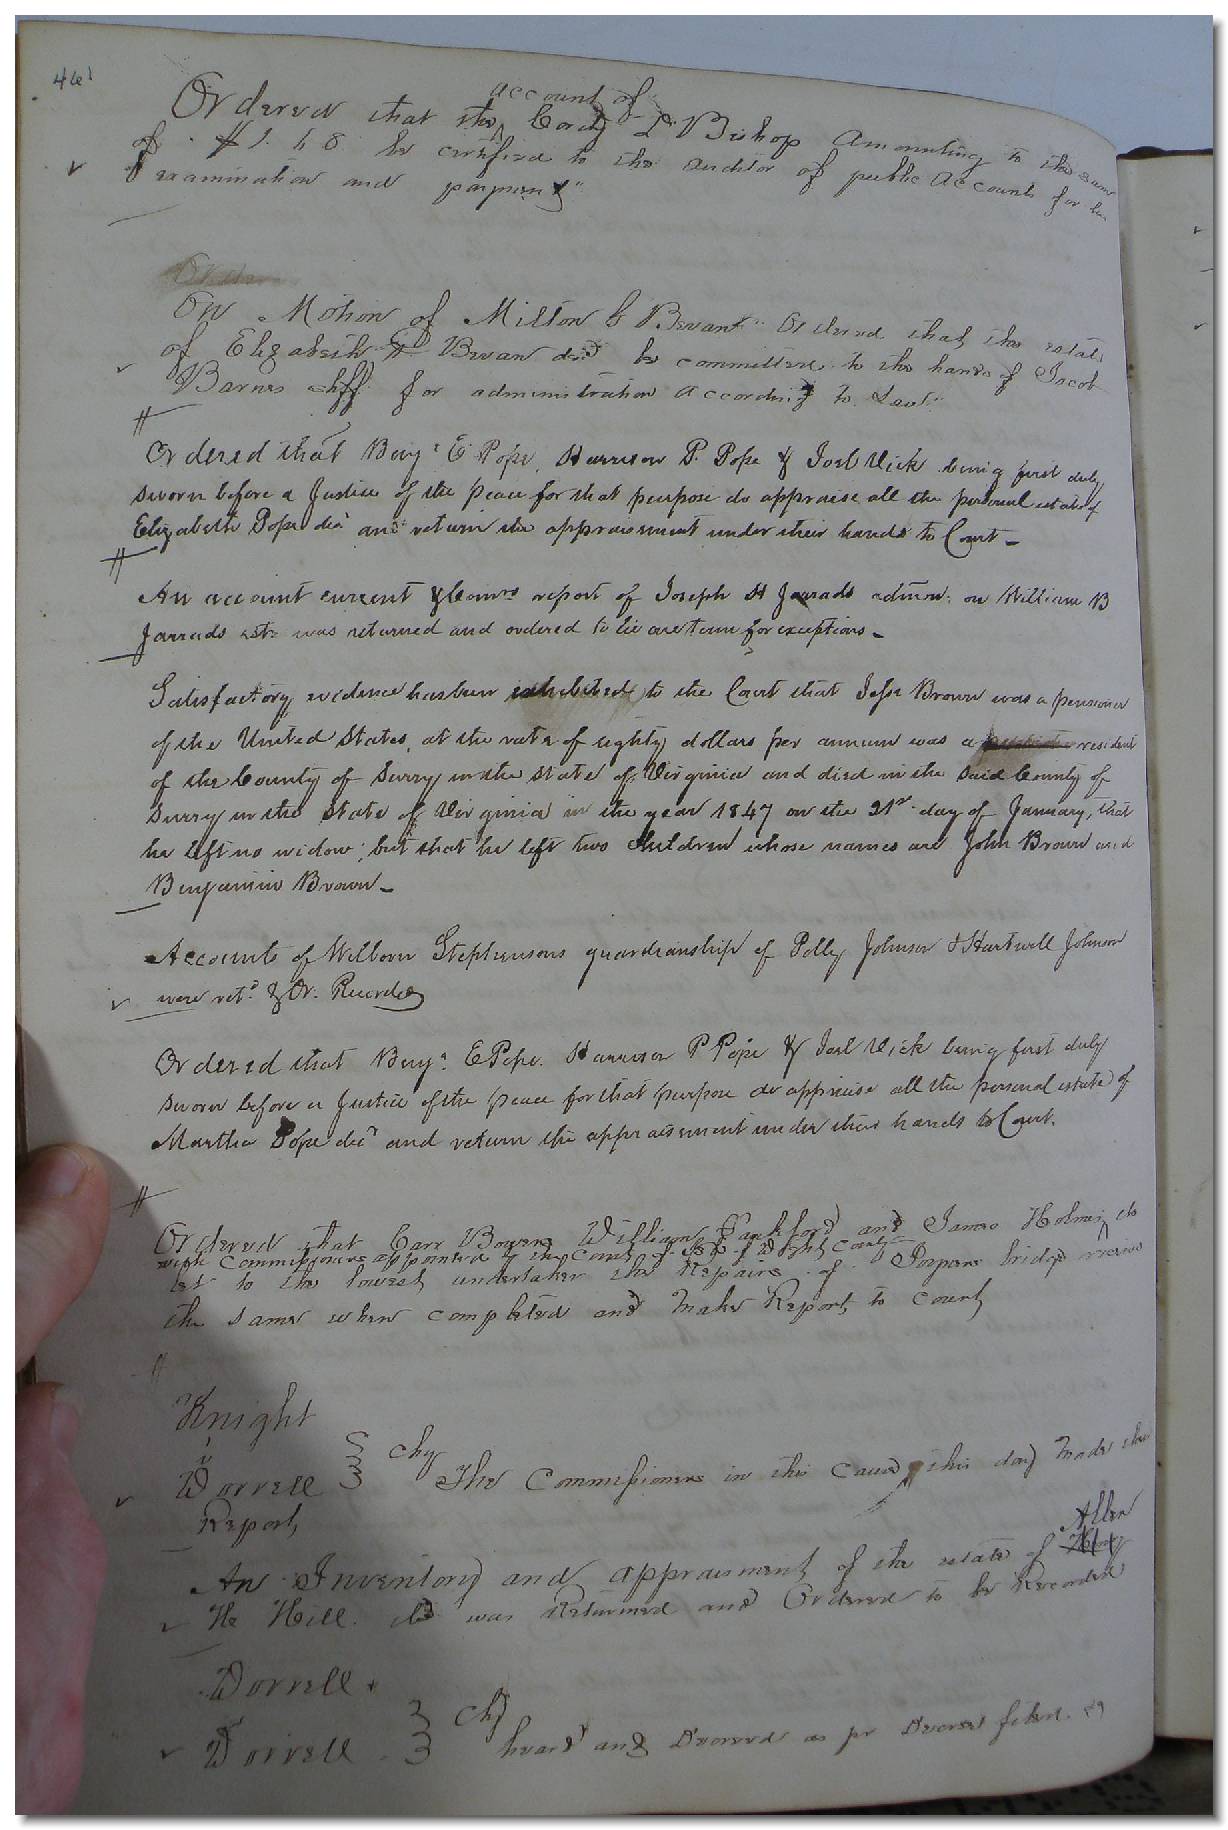 461
account of
Ordered that the Corty D Bishop Amounting to the sum
of $1.68 be certified to the auditor of public Accounts for his
examination and payment
Order
On Motion of Milton C Bevan Ordered that the estate
of Elizabeth Bevan decd be committed to the hands of Jacob
Barnes shff for administration according to Law
Ordered that Benjn E Pope, Harrison P. Pope & Joel Vick being first duly
sworn before a Justice of the peace for that purpose do appraise all the personal estate of
Elizabeth Pope decd and return the appraisement under their hands to Court –
An account current & Comrs report of Joseph H Jarrads admon: on William B
Jarrads este was returned and ordered to lie one term for exceptions –
Satisfactory evidence has been exhibited to the Court that Jesse Brown was a pensioner
of the United States, at the rate of eighty dollars per annum was a resident
of the County of Surry in the state of Virginia and died in the said County of
Surry in the State of Virginia in the year 1847 on the 21st day of January, that
he left no widow; but that he left two children whose names are John Brown and
Benjamin Brown –
Accounts of Wilborn Stephensons guardianship of Polly Johnson & Hartwell Johnson
were retd & Or. Recorded
Ordered that Benjn. E Pope. Harrison P Pope & Joel Vick being first duly
sworn before a Justice of the peace for that purpose do appraise all the personal estate of
Martha Pope decd and return the appraisement under their hands to Court.
Ordered that Carr Bowers William Lankford and James Holmes do
with Commissioners appointed by the County of Isle of Wight County
let to the lowest undertaker the Repairs of Joyners bridge receive
the same when completed and Make Report to court
Knight
v
Worrell chy The Commissioners in this cause this day made the
Report
Allen
An Inventory and appraisment of the estate of
He Hill decd was Returned and Ordered to be Recorded
Worrell
v
Worrell chy heard and Decreed as pr Decree filed.